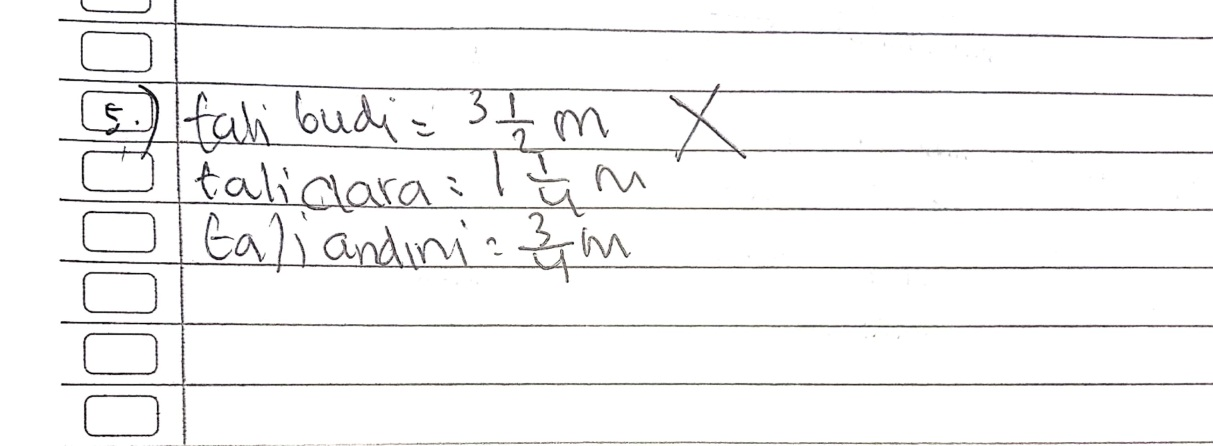 5.) tali budi = 3 1/2 m X
tali clara = 1 1/4 m
tali andini = 3/4 m